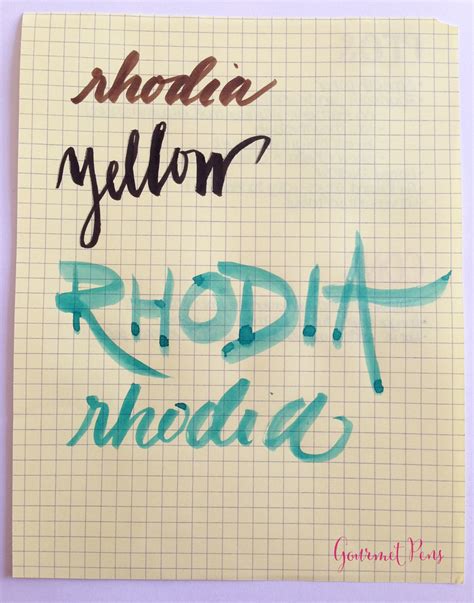 rhodia
yellow
RHODIA
rhodia
Gourmet Pens